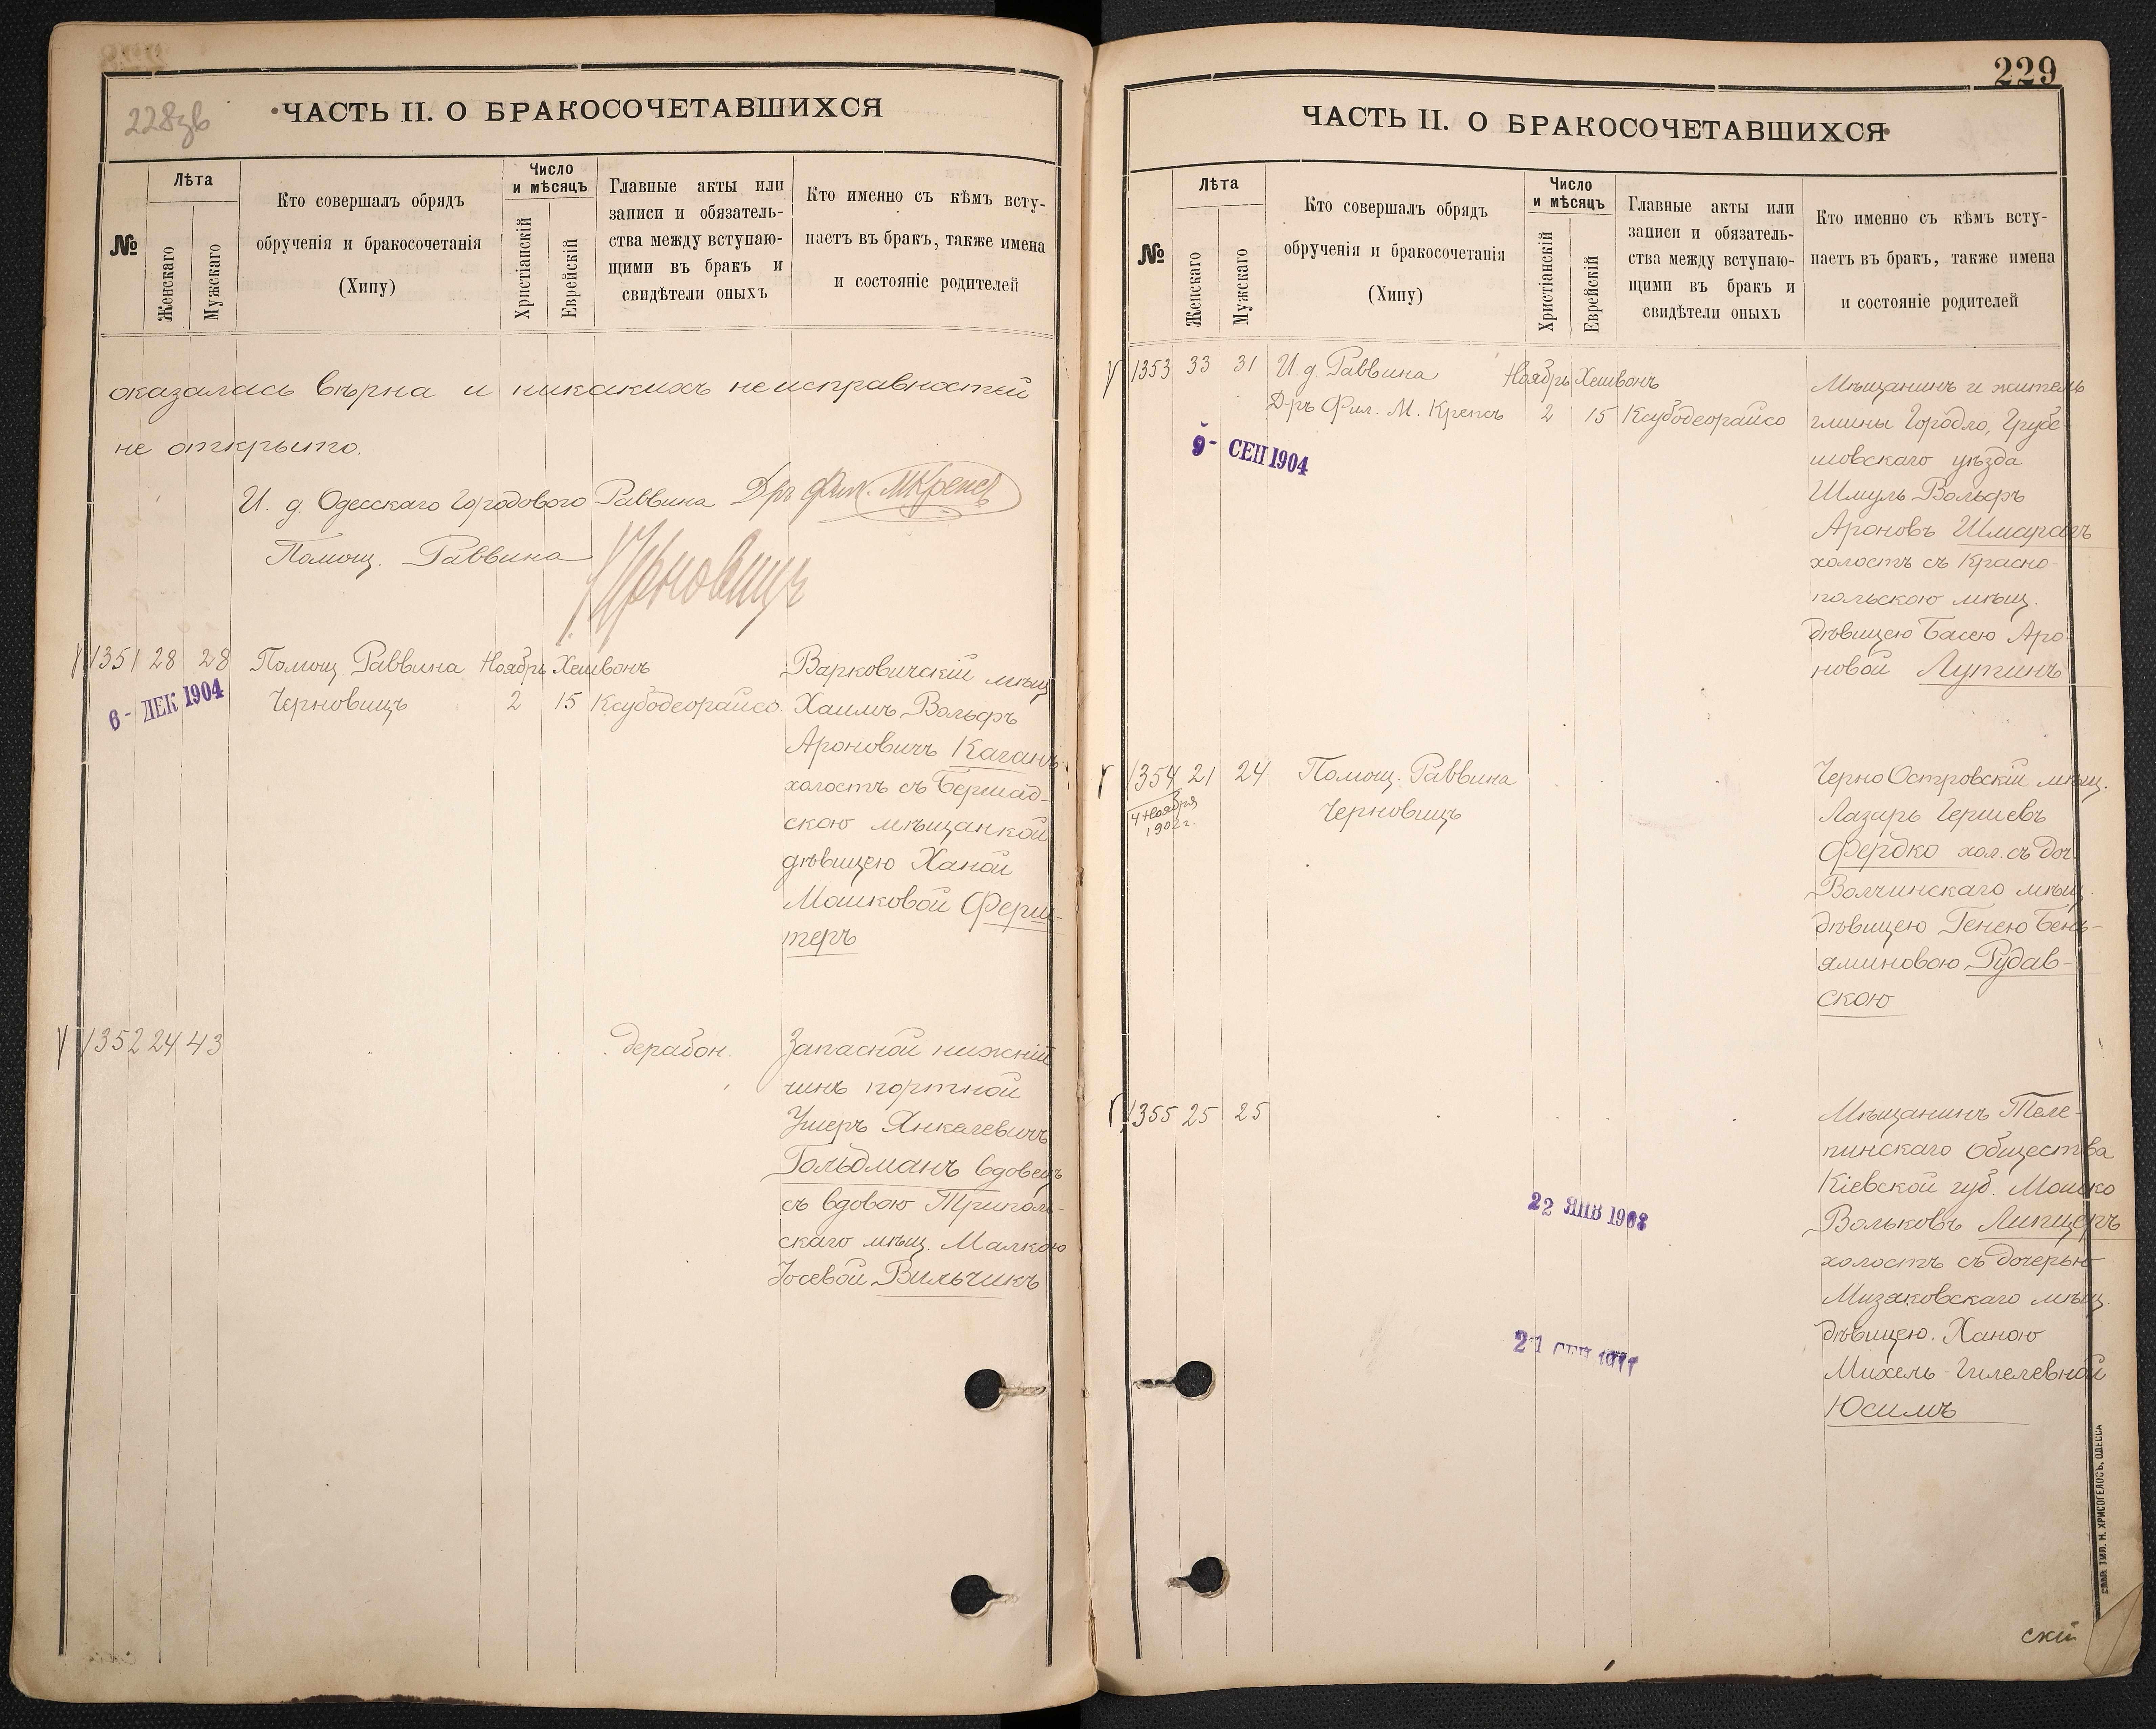 228зв
ЧАСТЬ II. О БРАКОСОЧЕТАВШИХСЯ
№
Лѣта
Женскаго
Мужскаго
Кто совершалъ обрядъ
обрученія и бракосочетанія
(Хипу)
Число
и мѣсяцъ
Христіанскій
Еврейскій
Главные акты или
записи и обязатель-
ства между вступаю-
щими въ бракъ и
свидѣтели оныхъ
Кто именно съ кѣмъ всту-
паетъ въ бракъ, также имена
и состояніе родителей
оказалась вѣрна и никакихъ неисправностей
не открыто.
И. д. Одесскаго Городового Раввина Д-ръ Фил. МКрепсъ
Помощ. Раввина Черновицъ
1351 28 28 Помощ. Раввина Ноябрь Хешвонъ Варковичскій мѣщ.
6- ДЕК 1904
Черновицъ 2 15 Ксубодеорайсо Хаимъ Вольфъ
Ароновичъ Каганъ
холостъ съ Бершад-
скою мѣщанкой
дѣвицею Ханой
Мошковой Ферш-
теръ
1352 24 43 дерабон. Запасной нижній
чинъ портной
Ушеръ Янкелевичъ
Гольдманъ вдовецъ
съ вдовою Триполь-
скаго мѣщ. Малкою
Іосевой Вильчикъ
229
ЧАСТЬ II. О БРАКОСОЧЕТАВШИХСЯ
№
Лѣта
Женскаго
Мужскаго
Кто совершалъ обрядъ
обрученія и бракосочетанія
(Хипу)
Число
и мѣсяцъ
Христіанскій
Еврейскій
Главные акты или
записи и обязатель-
ства между вступаю-
щими въ бракъ и
свидѣтели оныхъ
Кто именно съ кѣмъ всту-
паетъ въ бракъ, также имена
и состояніе родителей
1353 33 31 И. д. Раввина Ноябрь Хешвонъ Мѣщанинъ и житель
Д-ръ Фил. М. Крепсъ 2 15 Ксубодеорайсо гмины Городло, Грубе-
9- СЕН 1904
шовскаго уѣзда
Шмуль Вольфъ
Ароновъ Шмарагъ
холостъ съ Красно-
польскою мѣщ.
дѣвицею Басею Аро-
новой Лупинъ
1354 21 24 Помощ. Раввина ЧерноОстровскій мѣщ.
4 Ноября
1902 г.
Черновицъ Лазарь Гершевъ
Фердко хол. съ доч.
Волчинскаго мѣщ.
дѣвицею Генею Бень-
яминовою Рудав-
скою
1355 25 25 Мѣщанинъ Теле-
пинскаго Общества
Кіевской губ. Мошко
22 ЯНВ 1908
Вольковъ Липцеръ
холостъ съ дочерью
Мизяковскаго мѣщ.
21 СЕН 1911
дѣвицею Ханою
Михель-Гилелевной
Юсимъ
СКЛ. ТИП. Н. ХРИСОГЕЛОСЪ, ОДЕССА
скій